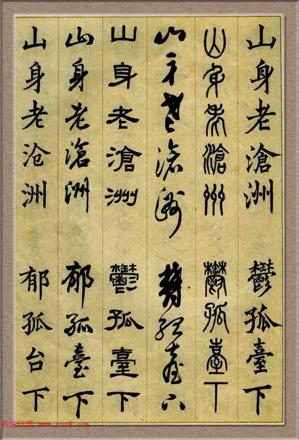 山身老滄洲 鬱孤臺下
山身老滄州 鬱孤臺下
山身老滄洲 鬱孤臺下
山身老滄洲 鬱孤臺下
山身老滄洲 郁孤臺下
山身老沧洲 郁孤台下